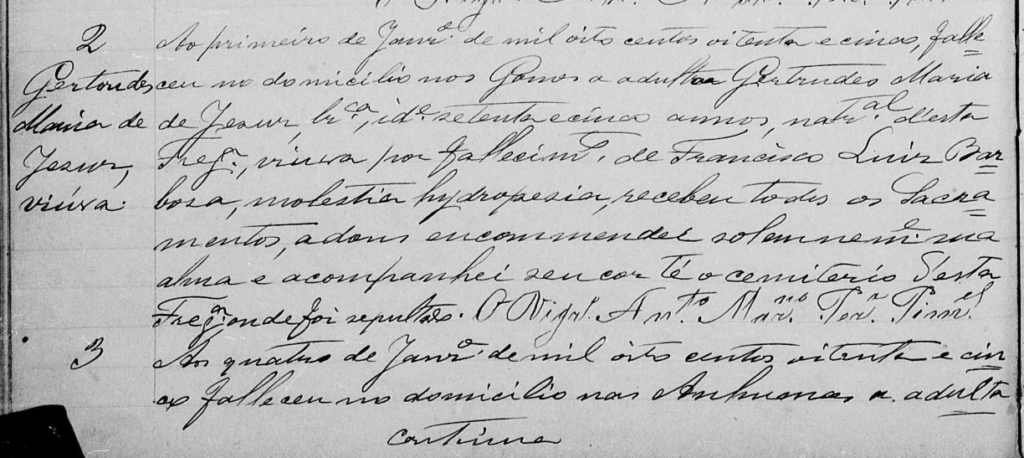 2 Ao primeiro de Janrº. de mil oito centos oitenta e cinco, falle=
Gertrudes ceu no domicilio nos Gomes a adulta Gertrudes Maria
Maria de de Jesus, brca, ide. setenta e cinco annos, natal. desta
Jesus, Fregª., viuva por fallecimtº. de Francisco Luiz Bar=
viúva. bosa, molestia hydropesia, recebeu todos os Sacra=
mentos, encommendei solemnemte. sua
alma e acompanhei seu cor té o cemiterio d'esta
Fregª. onde foi sepultado. O Vigrº. Antº. Marno. Pimel.
3 Aos quatro de Janrº. de mil oito centos oitenta e cin=
co falleceu no domicilio nas Anhumas a adulta
continua